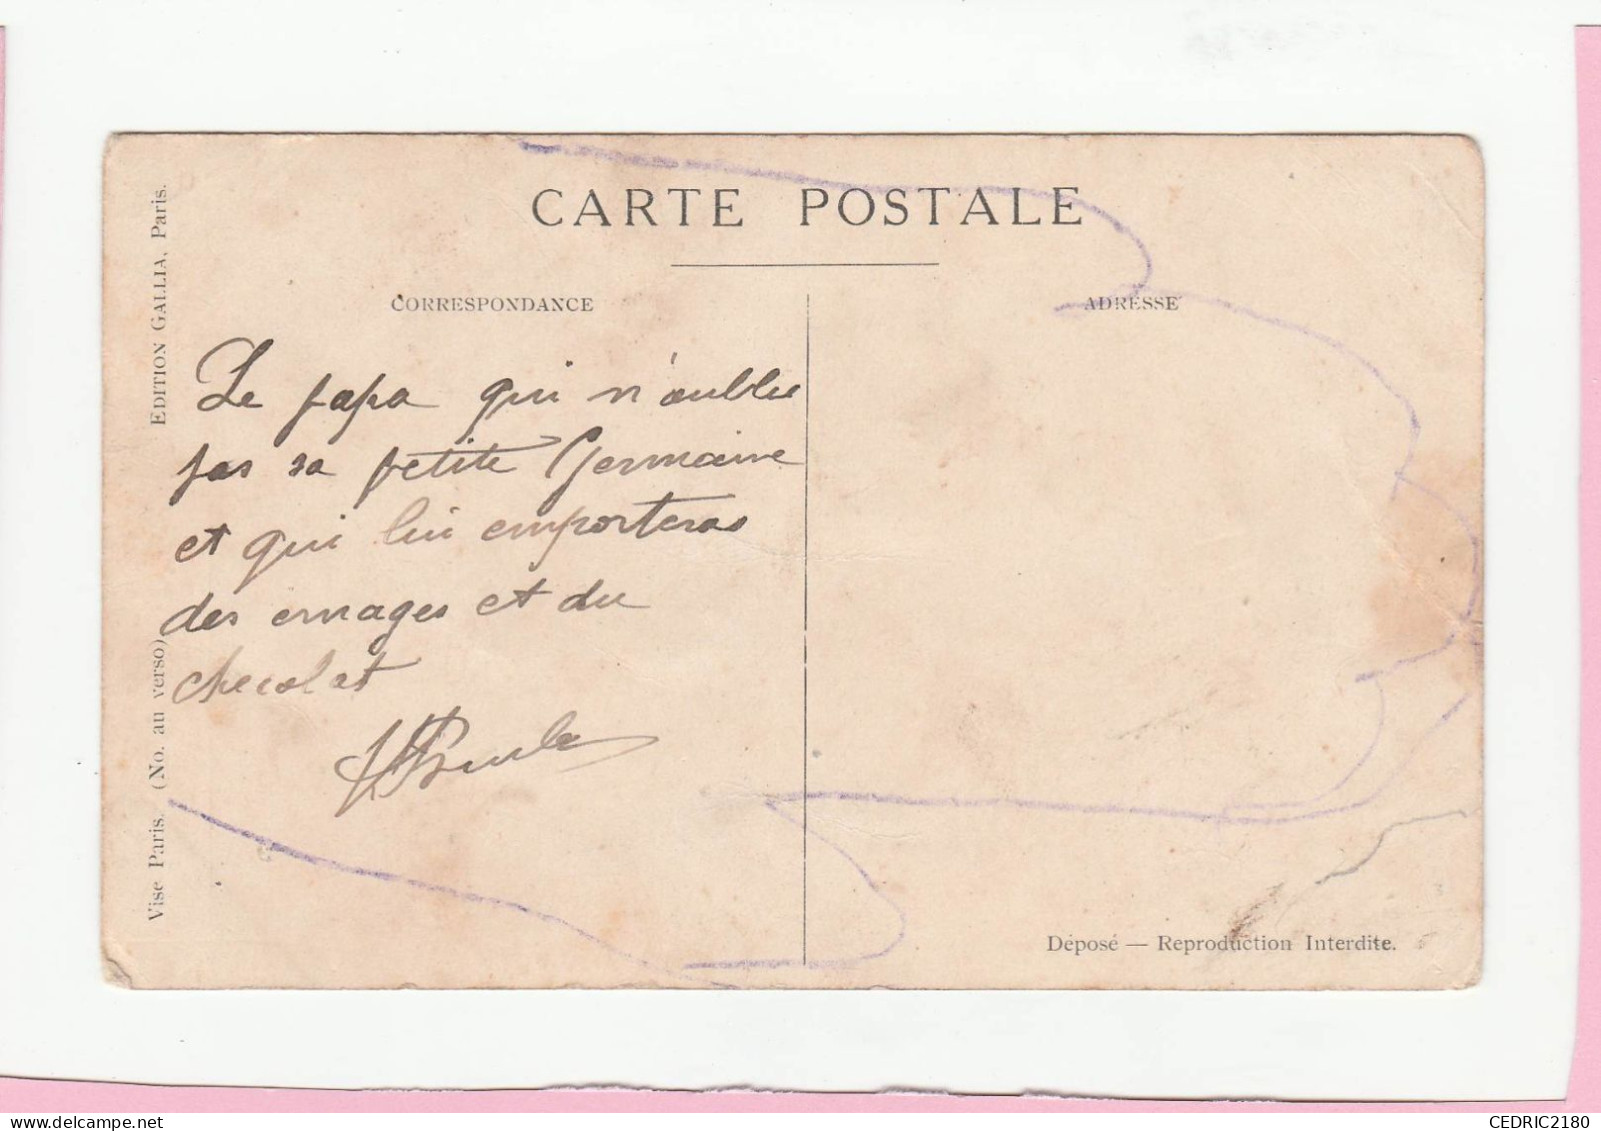 CARTE POSTALE
CORRESPONDANCE
ADRESSE
Le papa qui n'oublie
pas sa petite Germaine
et qui lui emporteras
des emages et du
checolat
Vise Paris. (No. au verso)
EDITION GALLIA, Paris.
Déposé — Reproduction Interdite.
CEDRIC2180